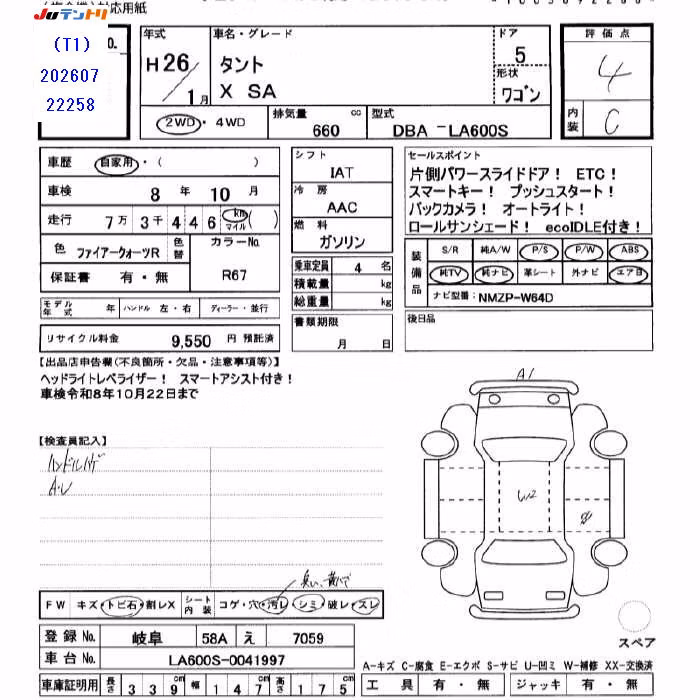 対応用紙
JUテントリ
(T1)
202607
22258
No.
年式
H26/1月
車名・グレード
タント
X SA
ドア
5
形状
ワゴン
評価点
4
内装
C
2WD・4WD
排気量 660 cc
型式 DBA-LA600S
車歴 自家用・( )
車検 8年10月
走行 7万3千446 km マイル ( )
色 ファイアークォーツR
色替
カラーNo. R67
保証書 有・無
モデル年式 年 ハンドル 左・右 ディーラー・並行
リサイクル料金 9,550 円 預託済
シフト
IAT
冷房
AAC
燃料
ガソリン
乗車定員 4 名
積載量 kg
総重量 kg
書類期限
月 日
セールスポイント
片側パワースライドドア! ETC!
スマートキー! プッシュスタート!
バックカメラ! オートライト!
ロールサンシェード! ecoIDLE付き!
装備品
S/R 純A/W P/S P/W ABS
純TV 純ナビ 革シート 外ナビ エアB
ナビ型番: NMZP-W64D
後日品
【出品店申告欄(不良箇所・欠品・注意事項等)】
ヘッドライトレベライザー! スマートアシスト付き!
車検令和8年10月22日まで
【検査員記入】
ハンドルハゲ
A・U
A1
W2
スペア
FW キズ・トビ石・割レX
シート内装 コゲ・穴・汚レ・シミ・破レ・スレ
登録No. 岐阜 58A え 7059
車台No. LA600S-0041997
車庫証明用 長さ 339cm 幅 147cm 高さ 175cm
A-キズ C-腐食 E-エクボ S-サビ U-凹ミ W-補修 XX-交換済
工具 有・無 ジャッキ 有・無